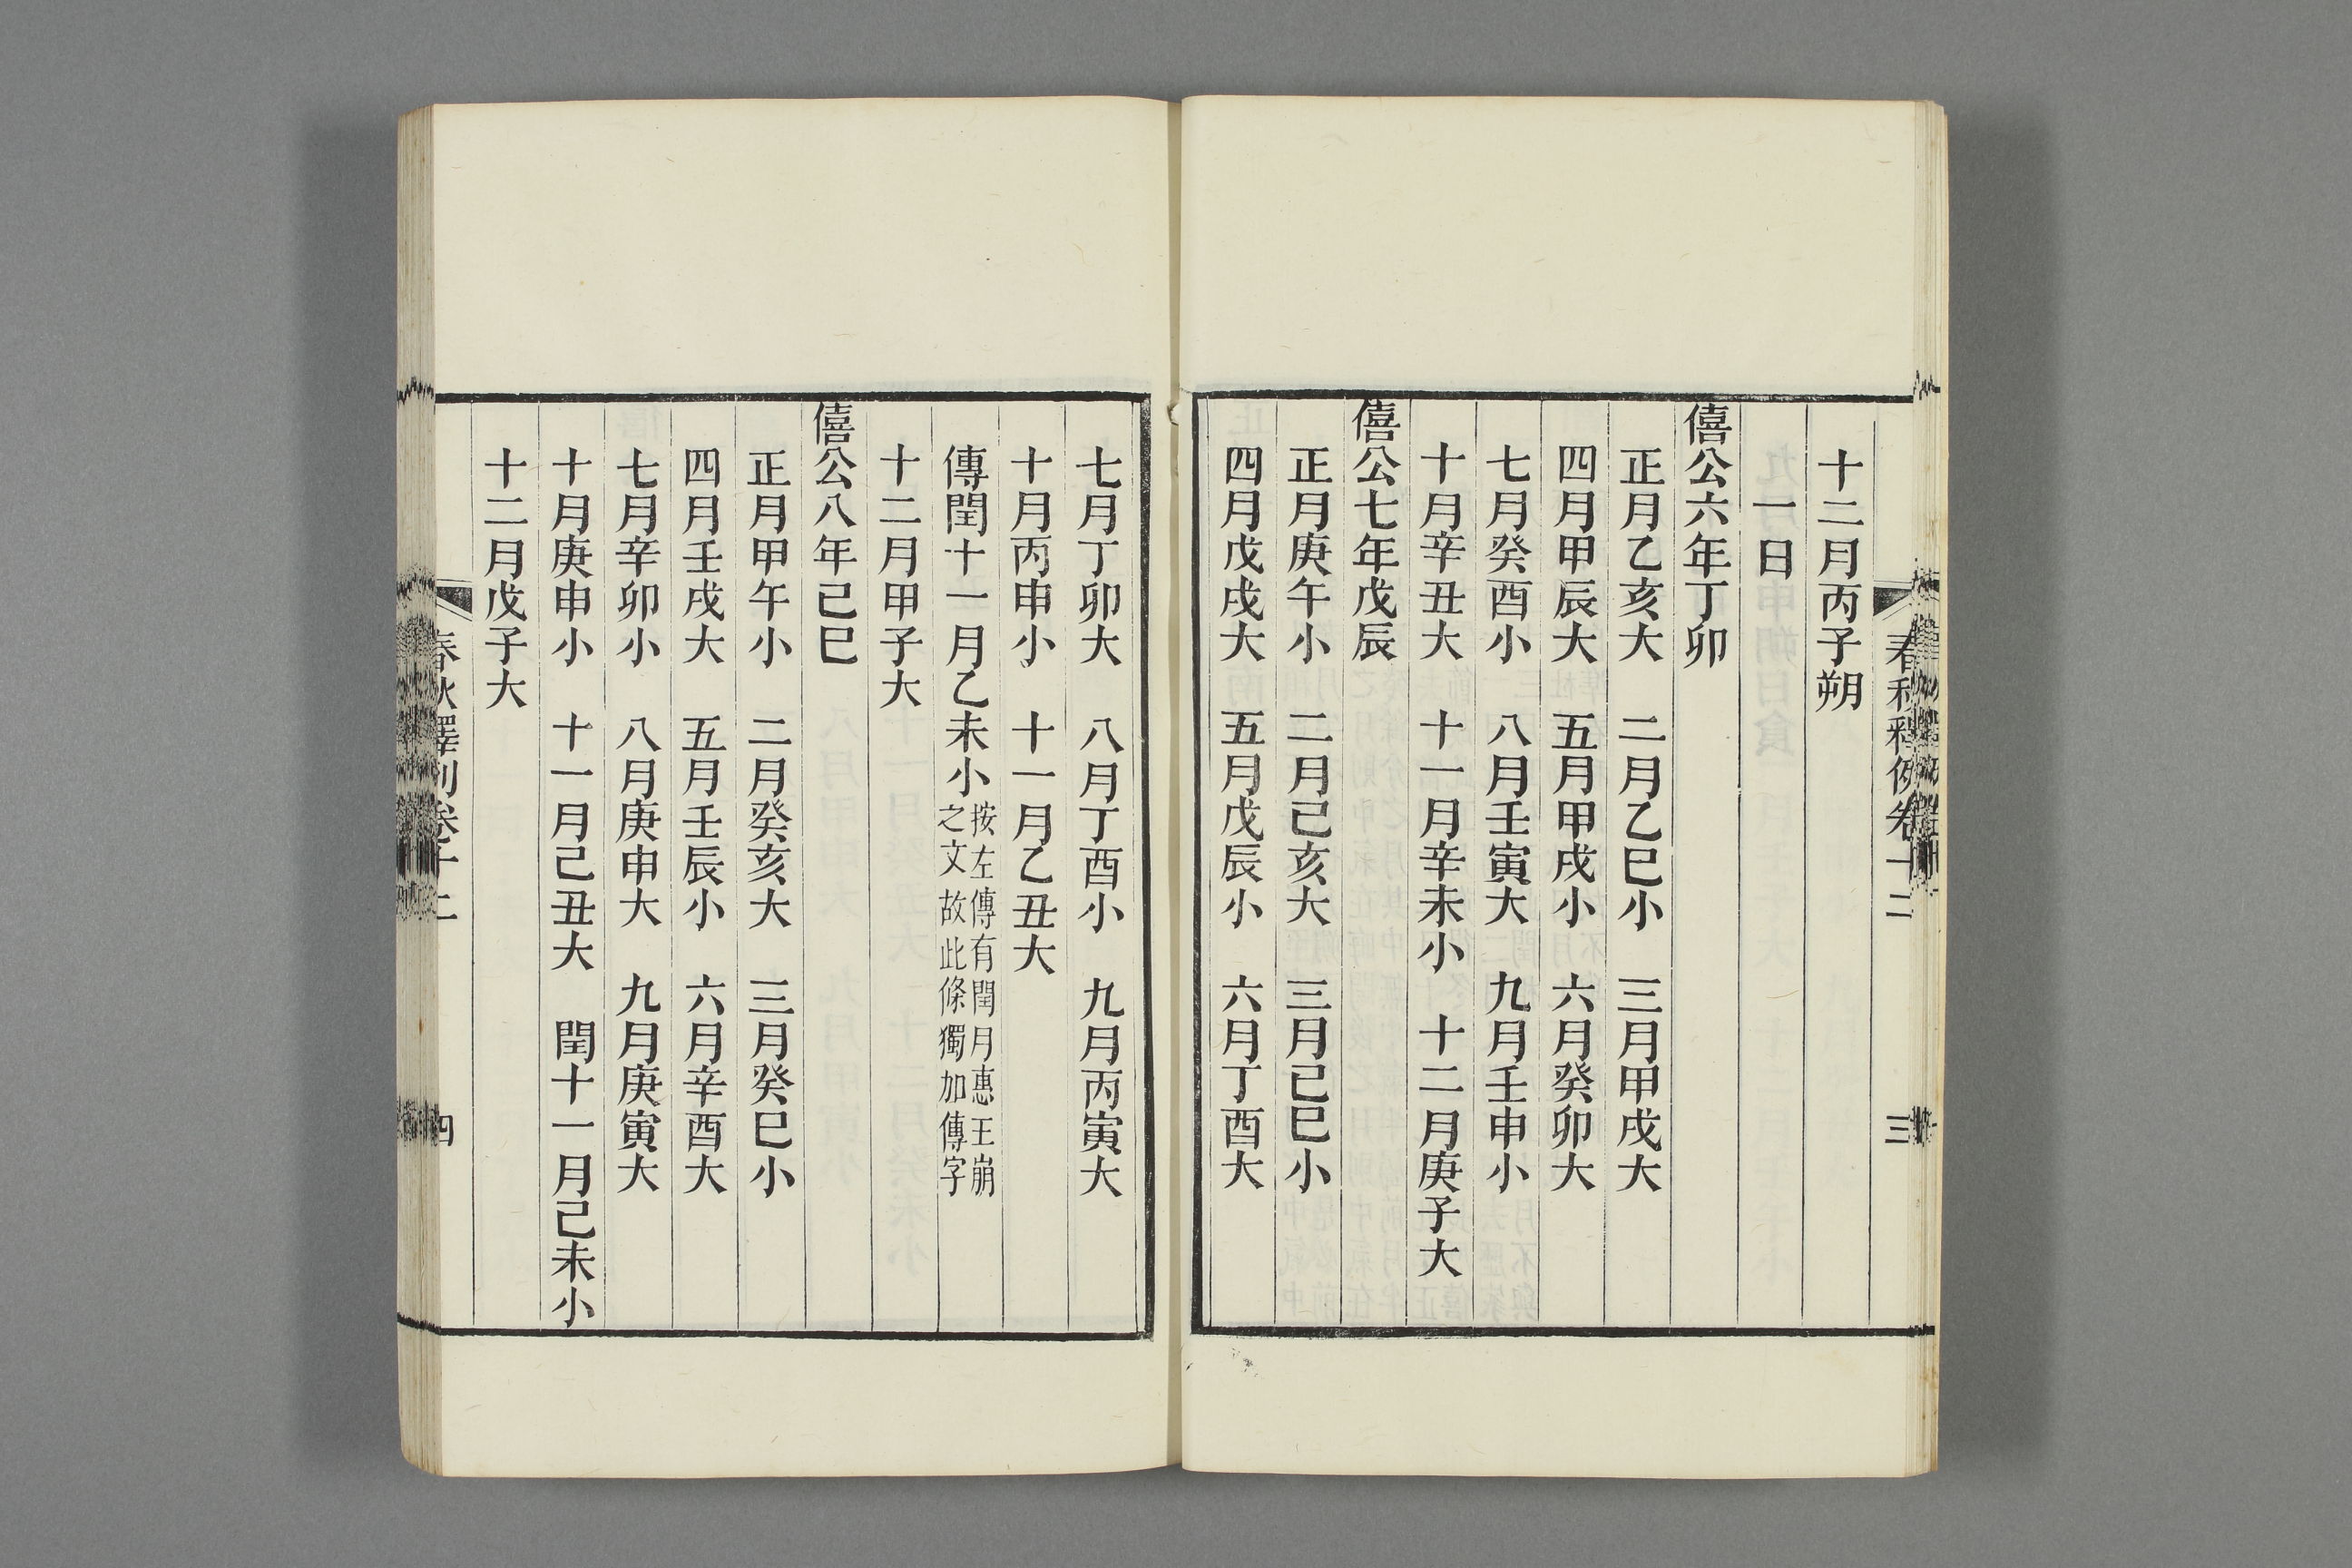 春秋釋例卷十二　三
十二月丙子朔
一日
僖公六年丁卯
正月乙亥大　二月乙巳小　三月甲戌大
四月甲辰大　五月甲戌小　六月癸卯大
七月癸酉小　八月壬寅大　九月壬申小
十月辛丑大　十一月辛未小　十二月庚子大
僖公七年戊辰
正月庚午小　二月己亥大　三月己巳小
四月戊戌大　五月戊辰小　六月丁酉大
七月丁卯大　八月丁酉小　九月丙寅大
十月丙申小　十一月乙丑大
傳閏十一月乙未小按左傳有閏月惠王崩之文故此條獨加傳字
十二月甲子大
僖公八年己巳
正月甲午小　二月癸亥大　三月癸巳小
四月壬戌大　五月壬辰小　六月辛酉大
七月辛卯小　八月庚申大　九月庚寅大
十月庚申小　十一月己丑大　閏十一月己未小
十二月戊子大
春秋釋例卷十二　四